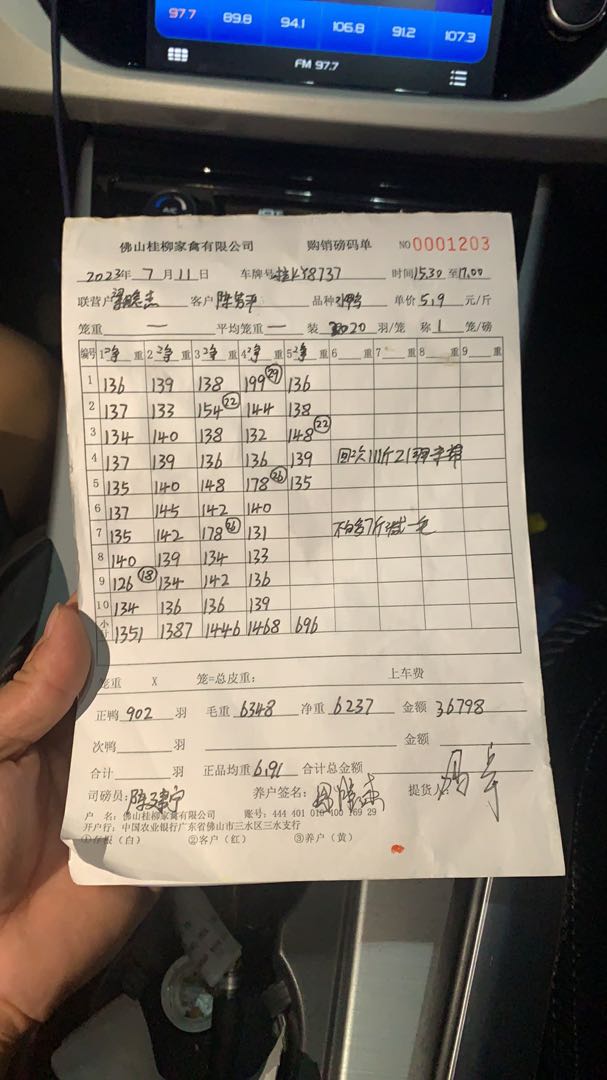 97.7 89.8 94.1 106.8 91.2 107.3
FM 97.7
佛山桂柳家禽有限公司 购销磅码单 NO 0001203
2023年 7 月 11 日 车牌号 桂KY8737 时间 15.30 至 17.00
联营户 客户 品种 单价 5.9 元/斤
笼重 — 平均笼重 — 装 20 羽/笼 称 1 笼/磅
编号 1 净 重 2 净 重 3 净 重 4 净 重 5 净 重 6 重 7 重 8 重 9 重
1 136 139 138 199 29 136
2 137 133 154 22 144 138
3 134 140 138 132 148 22
4 137 139 136 136 139 回次111斤21羽
5 135 140 148 178 26 135
6 137 145 142 140
7 135 142 178 26 131 不白名7斤
8 140 139 134 133
9 126 18 134 142 136
10 134 136 136 139
小计 1351 1387 1446 1468 696
笼重 X 笼=总皮重: 上车费
正鸭 902 羽 毛重 6348 净重 6237 金额 36798
次鸭 羽 金额
合计 羽 正品均重 6.91 合计总金额
司磅员: 养户签名: 提货人:
户 名: 佛山桂柳家禽有限公司 账号: 444 401 010 400 169 29
开户行: 中国农业银行广东省佛山市三水区三水支行
①存根(白) ②客户(红) ③养户(黄)